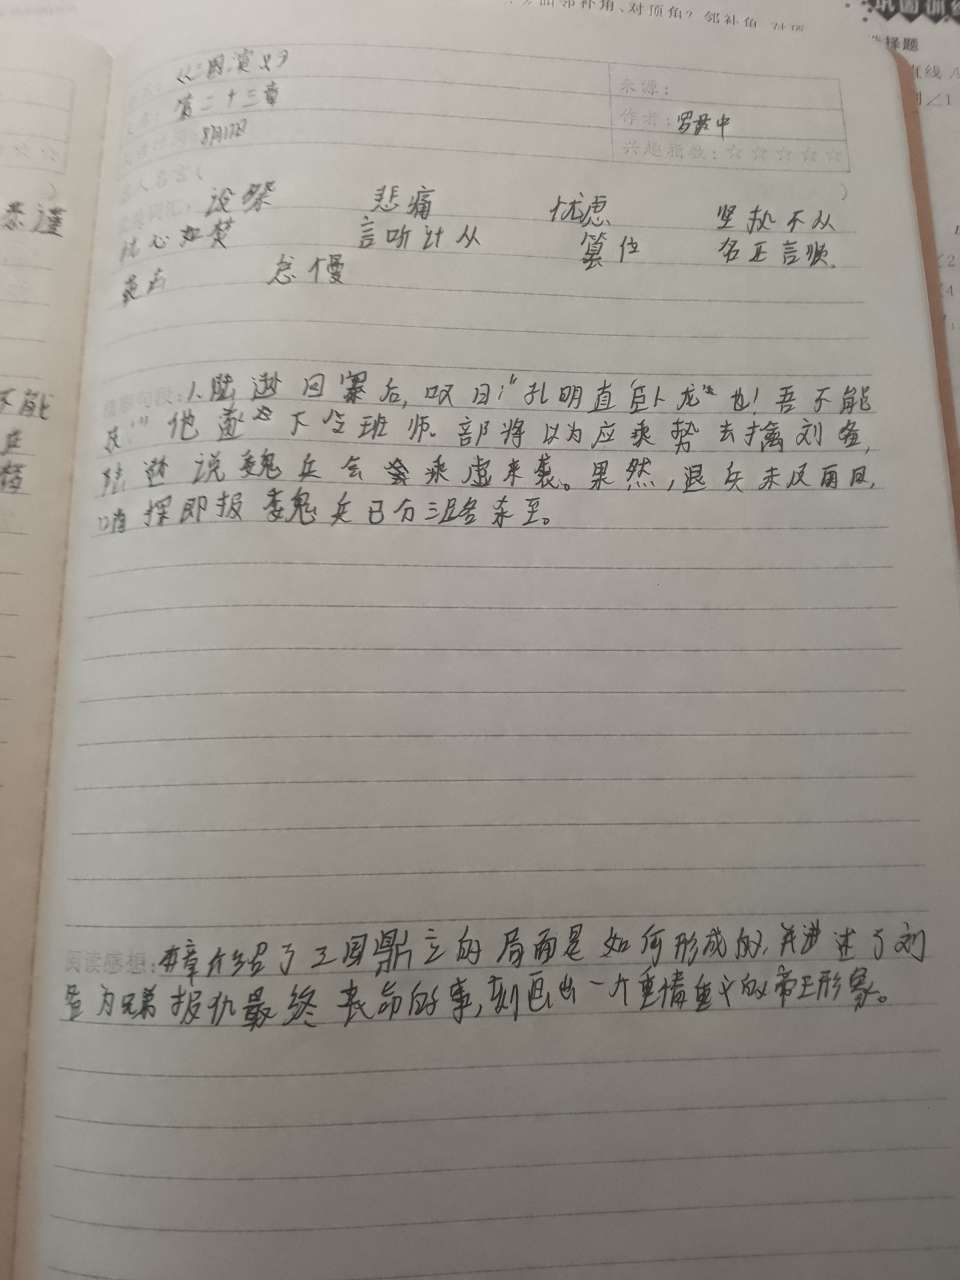 邻补角、对顶角？邻补角
巩固训练
择题
直线
∠1
《三国演义》
第二十三章
8月17日
来源：
作者：罗贯中
兴趣指数：☆☆☆☆☆
名人名言（ ）
词汇：设祭 悲痛 忧虑 坚执不从
忧心如焚 言听计从 篡位 名正言顺
怠慢
恭谨
精彩句段：1.陆逊回寨后，叹曰：“孔明真“卧龙”也！吾不能
及！”他遂下令班师。部将以为应乘势去擒刘备，
陆逊说魏兵会乘虚来袭。果然，退兵未及两日，
哨探即报魏兵已分三路杀至。
不能
阅读感想：本章介绍了三国鼎立的局面是如何形成的，并讲述了刘
备为兄弟报仇最终丧命的事，刻画出一个重情重义的帝王形象。